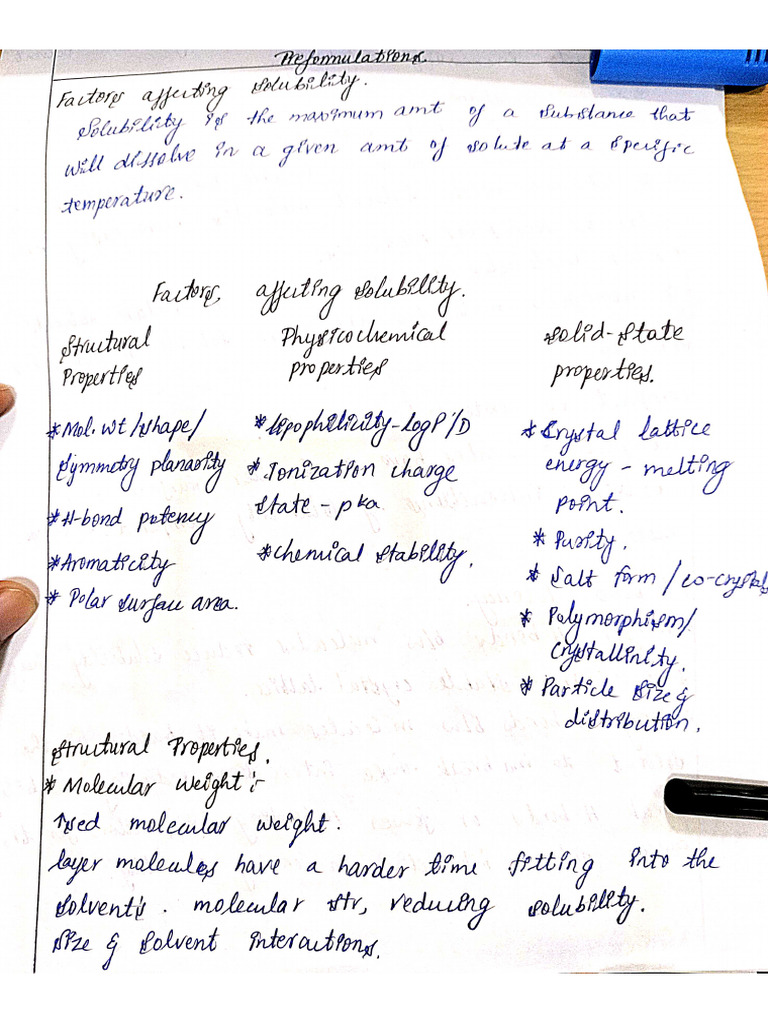 Preformulations.
Factors affecting solubility.
Solubility is the maximum amt of a substance that
will dissolve in a given amt of solute at a specific
temperature.
Factors, affecting solubility.
Structural Properties
* Mol. wt/shape/
symmetry planarity
* H-bond potency
* Aromaticity
* Polar surface area.
Physicochemical properties
* Lipophilicity - log P/D
* Ionization charge
state - pka
* Chemical stability.
Solid-State properties.
* Crystal lattice
energy - melting
point.
* Purity.
* Salt form / co-crystals
* Polymorphism/
crystallinity.
* Particle size &
distribution.
Structural Properties.
* Molecular weight :-
↑sed molecular weight.
layer molecules have a harder time fitting into the
solvent's . molecular str, reducing solubility.
size & solvent interactions.